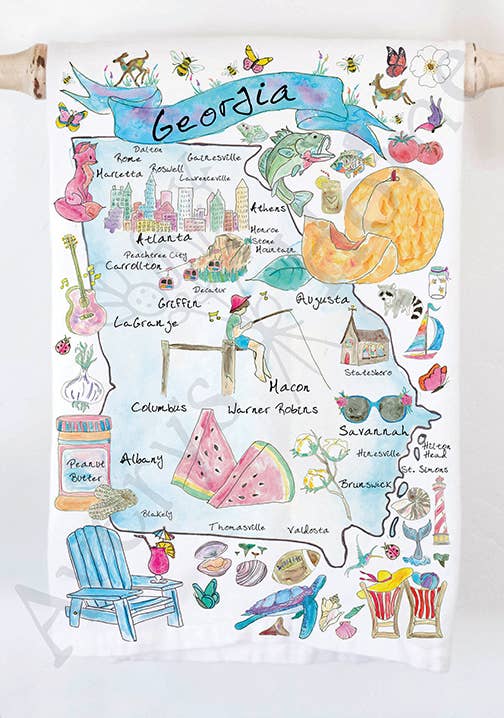 Georgia
Dalton
Rome
Gainesville
Roswell
Marietta
Lawrenceville
Athens
Atlanta
Monroe
Stone
Mountain
Peachtree City
Carrollton
Decatur
Griffin
Augusta
LaGrange
Statesboro
Macon
Columbus
Warner Robins
Savannah
Hilton
Head
Hinesville
St. Simons
Peanut
Butter
Albany
Brunswick
Blakely
Thomasville
Valdosta